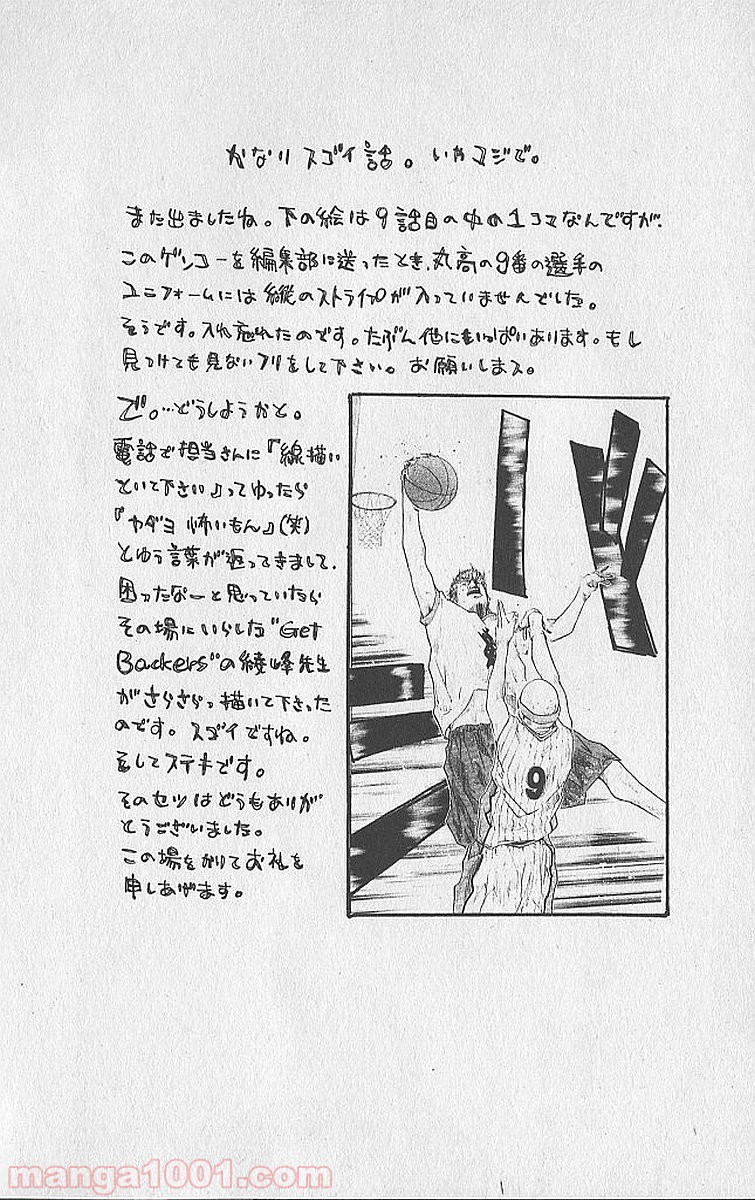 かなりスゴイ話。いやマジで。
また出ましたね。下の絵は9話目の中の1コマなんですが、
このゲンコーを編集部に送ったとき、丸高の9番の選手の
ユニフォームには縦のストライプが入っていませんでした。
そうです。入れ忘れたのです。たぶん他にもいっぱいあります。もし
見つけても見ないフリをして下さい。お願いしまス。
で。…どうしようかと。
電話で担当さんに『線描い
といて下さい』ってゆったら
『ヤダヨ 怖いもん』(笑)
とゆう言葉が返ってきまして、
困ったなーと思っていたら
その場にいらした"Get
Backers"の綾峰先生
がさらさらっ描いて下さった
のです。スゴイですね。
そしてステキです。
そのセツはどうもありが
とうございました。
この場をかりてお礼を
申しあげます。
9
manga1001.com